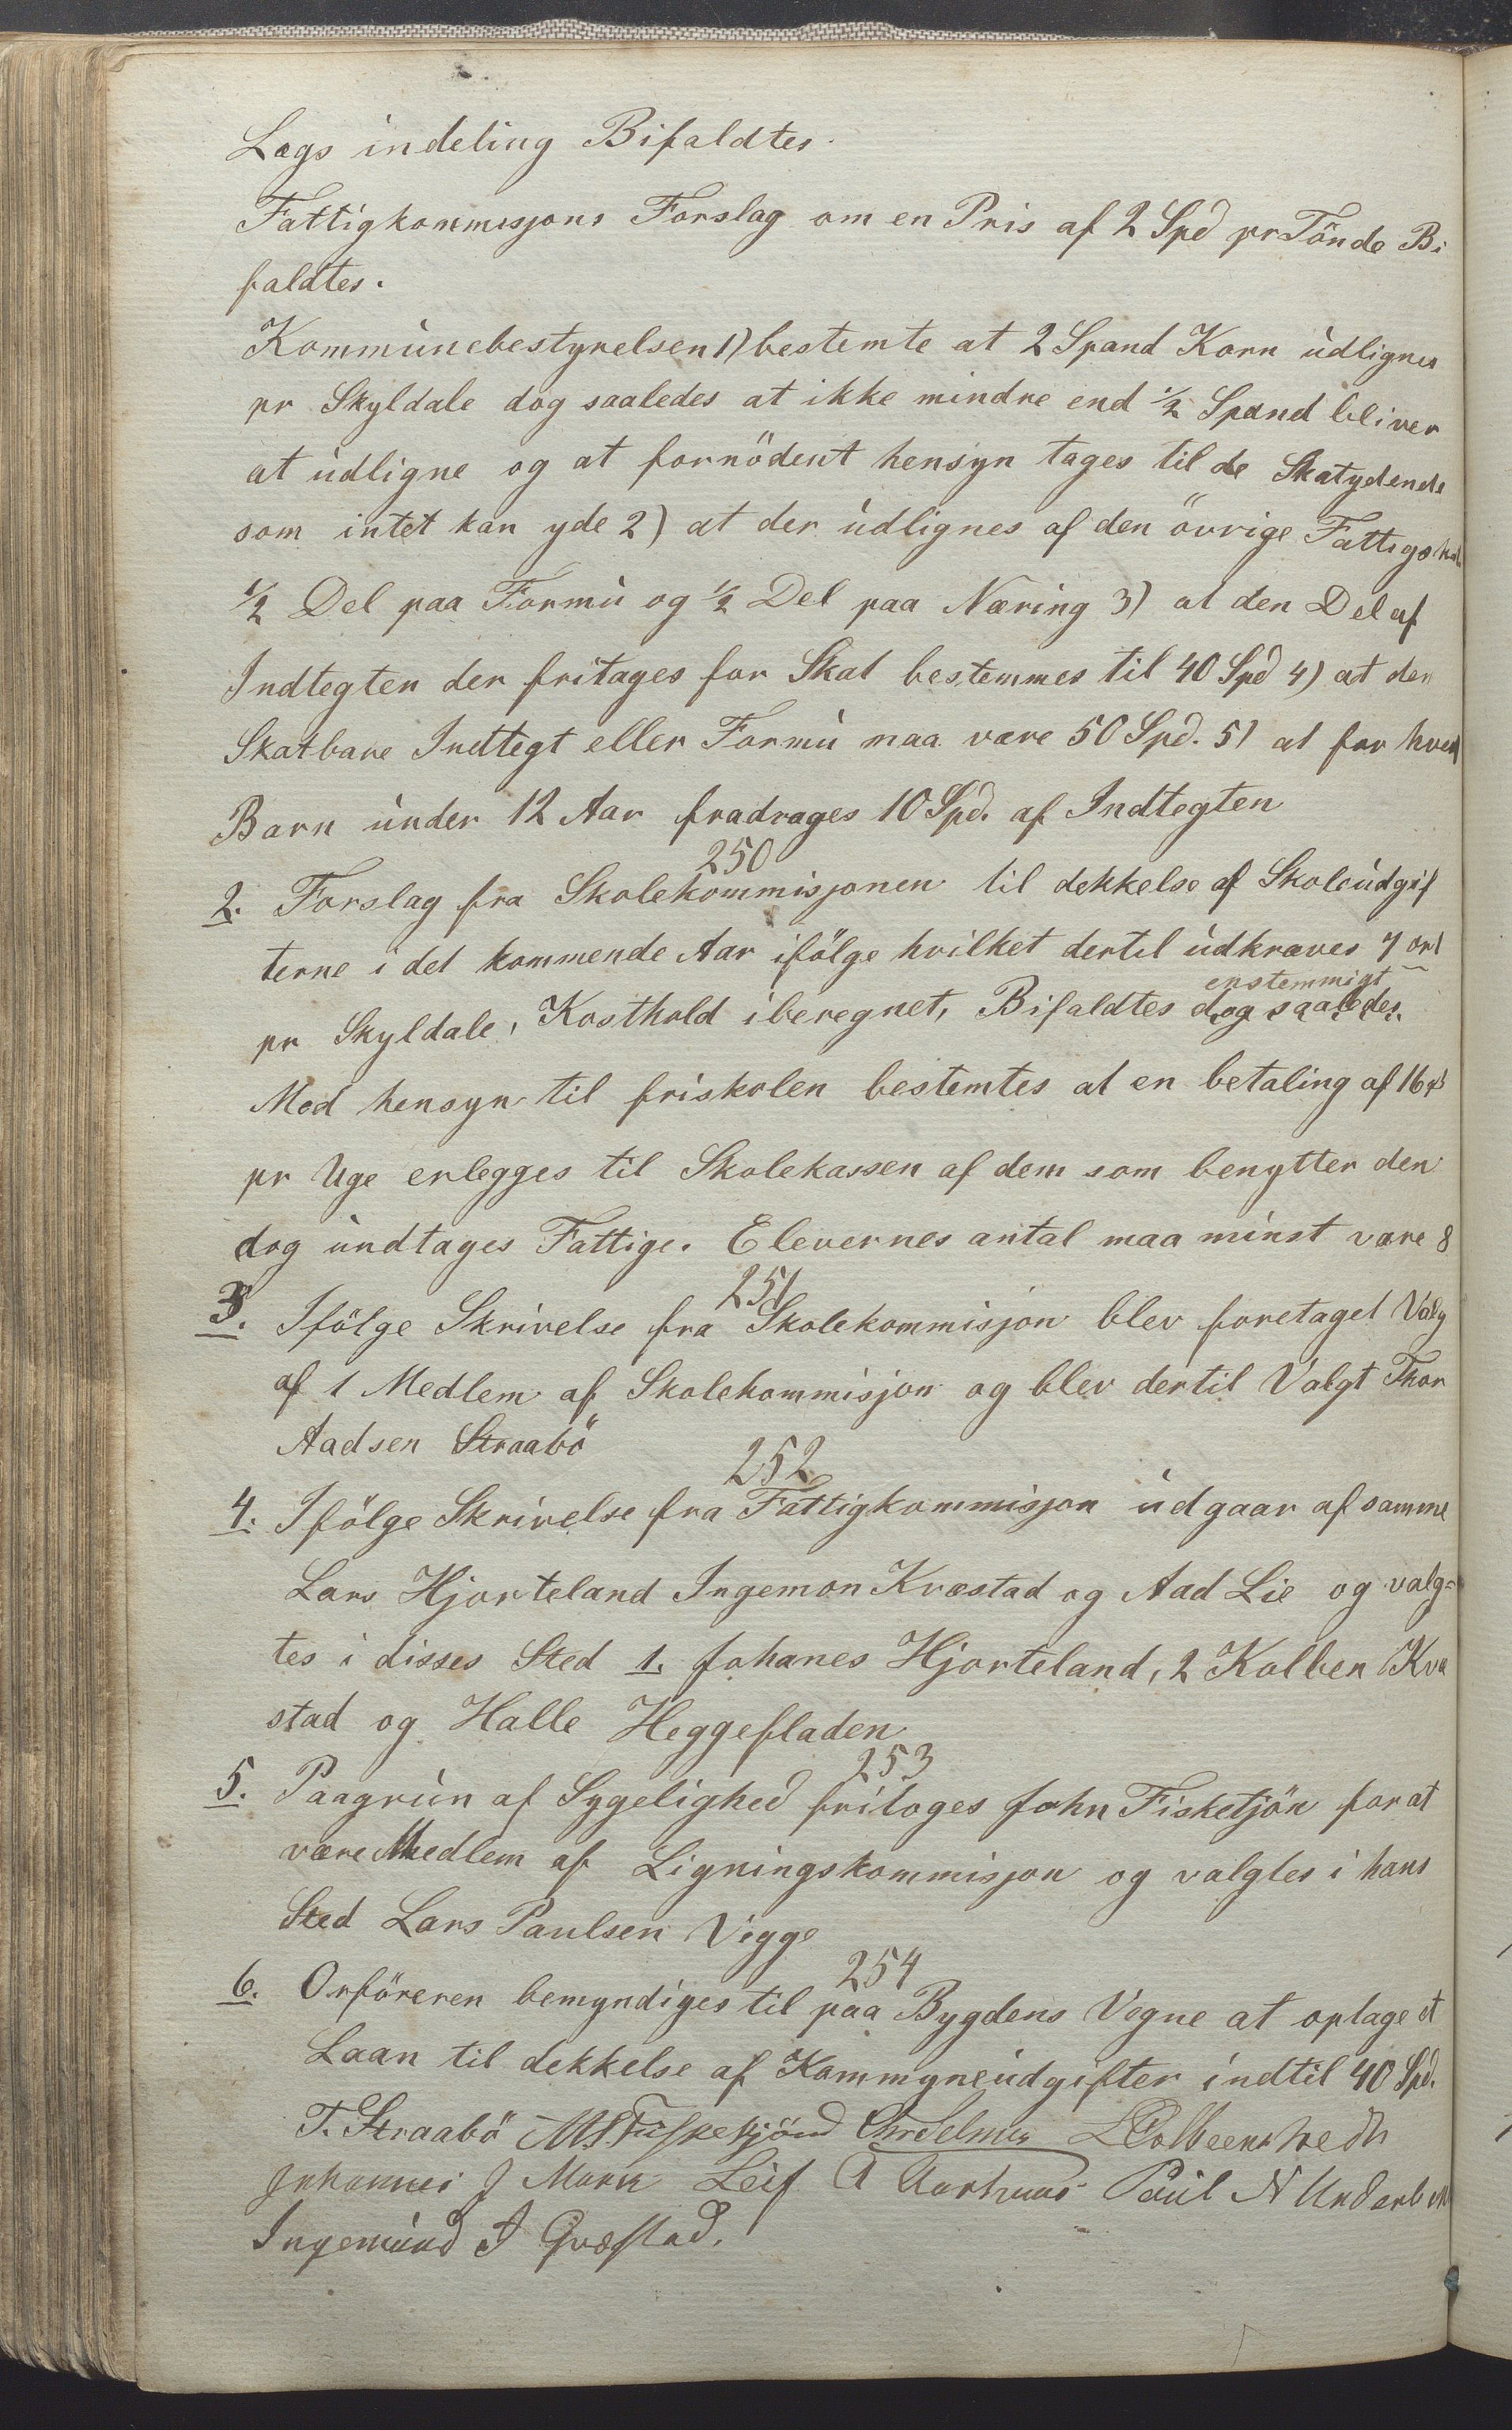 Lægs indeling Bifaldtes.
Fattigkommisjons Forslag om en Pris af 2 Spd pr Tönde Bi
faldtes.
Kommunebestyrelsen 1) bestemte at 2 Spand Korn udlignes
pr Skyldale dog saaledes at ikke mindre end 1/2 Spand bliver
at udligne og at fornödent hensyn tages til de Skatydende
som intet kan yde 2) at der udlignes af den övrige Fattigskat
1/2 Del paa Formu og 1/2 Del paa Næring 3) at den Del af
Indtegten der fritages for Skat bestemmes til 40 Spd 4) at den
Skatbare Indtegt eller Formu maa være 50 Spd. 5) at for hvert
Barn under 12 Aar fradrages 10 Spd. af Indtegten
250
2. Forslag fra Skolekommisjonen til dekkelse af Skoleudgif
terne i det kommende Aar ifölge hvilket dertil udkræves 7 ort
enstemmigt
pr Skyldale, Kosthold iberegnet, Bifaldtes dog saaledes.
Med hensyn til friskolen bestemtes at en betaling af 16 ß
pr Uge erlegges til Skolekassen af dem som benytter den
dog undtages Fattige. Elevernes antal maa minst være 8
251
3. Ifölge Skrivelse fra Skolekommisjon blev foretaget Valg
af 1 Medlem af Skolekommisjon og blev dertil Valgt Thor
Aadsen Straabö
252
4. Ifölge Skrivelse fra Fattigkommisjon udgaar af samme
Lars Hjorteland Ingemon Kvæstad og Aad Lie og valg=
tes i disses Sted 1. Johanes Hjorteland, 2 Kolben Kvæ
stad og Halle Heggefladen
253
5. Paagrun af Sygelighed fritoges John Fisketjön for at
være Medlem af Ligningskommisjon og valgtes i hans
Sted Lars Paulsen Vigge
254
6. Orföreren bemyndiges til paa Bygdens Vegne at optage et
Laan til dekkelse af Kommyneudgifter indtil 40 Spd.
T. Straabö
Johannes J Mork Leif A Aarhuus Paul N Underb
Ingemund A Qvæstad.